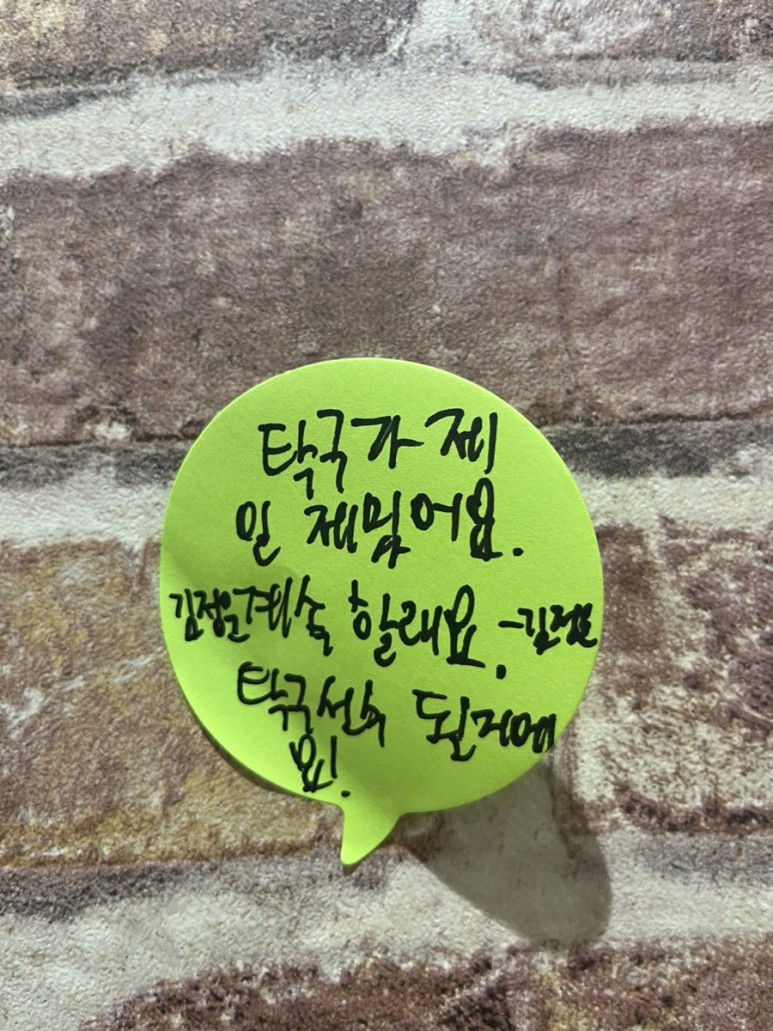 탁구가 제
일 제밌어요.
김정일계속 할래요. -김정일
탁구선수 될거에
요!